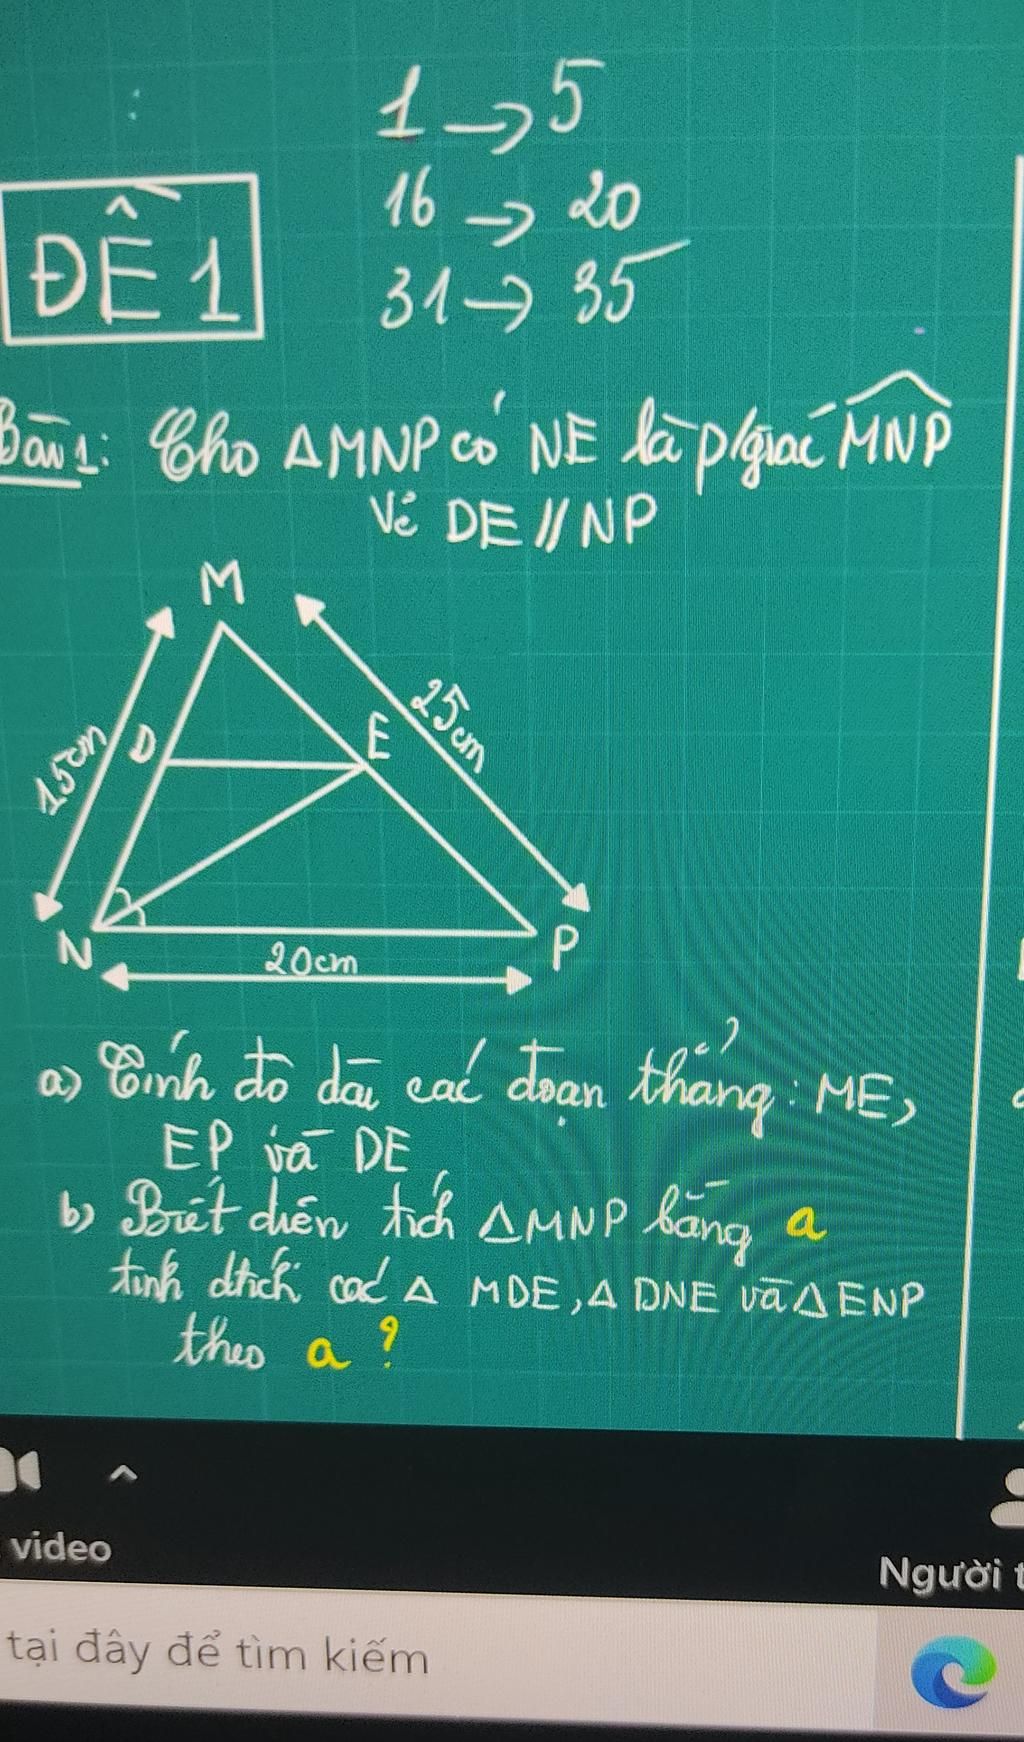 1 → 5
ĐỀ 1
16 → 20
31 → 35
Bài 1: Cho ΔMNP có NE là p/giác MNP
Vẽ DE // NP
M
15cm
D
E
25cm
N
20cm
P
a) Tính độ dài các đoạn thẳng: ME,
EP và DE
b) Biết diện tích ΔMNP bằng a
tính dtích các Δ MDE, Δ DNE và Δ ENP
theo a ?
video
Người t
tại đây để tìm kiếm